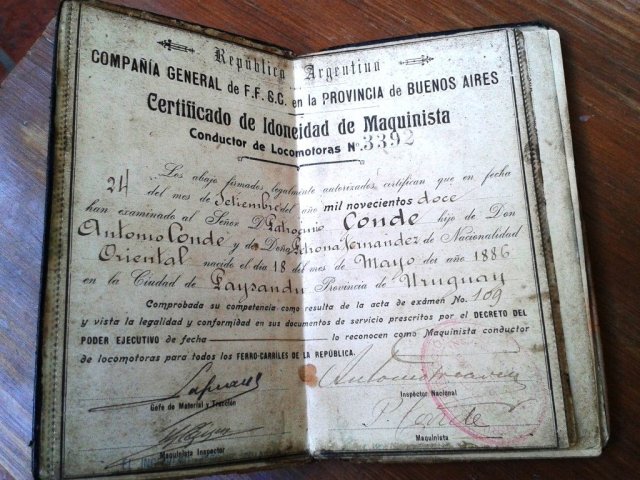 República Argentina
COMPAÑÍA GENERAL de F.F.C.C. en la PROVINCIA de BUENOS AIRES
Certificado de Idoneidad de Maquinista
Conductor de Locomotoras Nº 3392
Los abajo firmados legalmente autorizados, certifican que en fecha
24 del mes de Setiembre del año mil novecientos doce
han examinado al Señor D. Patrocinio Conde hijo de Don
Antonio Conde y de Doña Petrona Fernandez de Nacionalidad
Oriental nacido el dia 18 del mes de Mayo del año 1886
en la Ciudad de Paysandu Provincia de Uruguay
Comprobada su competencia como resulta de la acta de exámen No. 109
y vista la legalidad y conformidad en sus documentos de servicio prescritos por el DECRETO DEL
PODER EJECUTIVO de fecha lo reconocen como Maquinista conductor
de locomotoras para todos los FERRO-CARRILES DE LA REPÚBLICA.
Gefe de Material y Tracción
Inspector Nacional
P. Conde
Maquinista Inspector
Maquinista